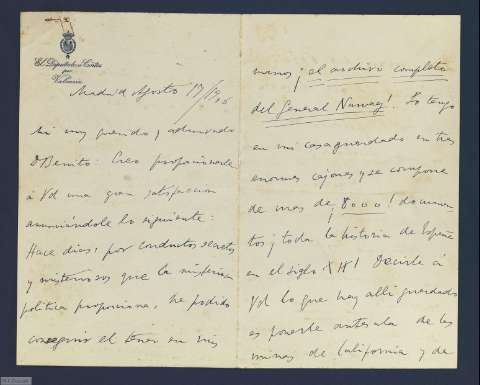 El Diputado á Cortes
por
Valencia
Madrid Agosto 19/1906
Mi muy querido y admirado
D Benito: Creo proporcionarle
á Vd una gran satisfaccion
anunciándole lo siguiente:
Hace dias, por conductos secretos
y misteriosos que la misteriosa
politica proporciona, he podido
conseguir el tener en mis
manos ¡el archivo completo
del General Narvaez! Lo tengo
en mi casa guardado en tres
enormes cajones y se compone
de mas de ¡8000! documen-
tos ¡toda la historia de España
en el siglo XIX! Decirle á
Vd lo que hay alli guardado
es ponerle antesala de las
minas de California y de